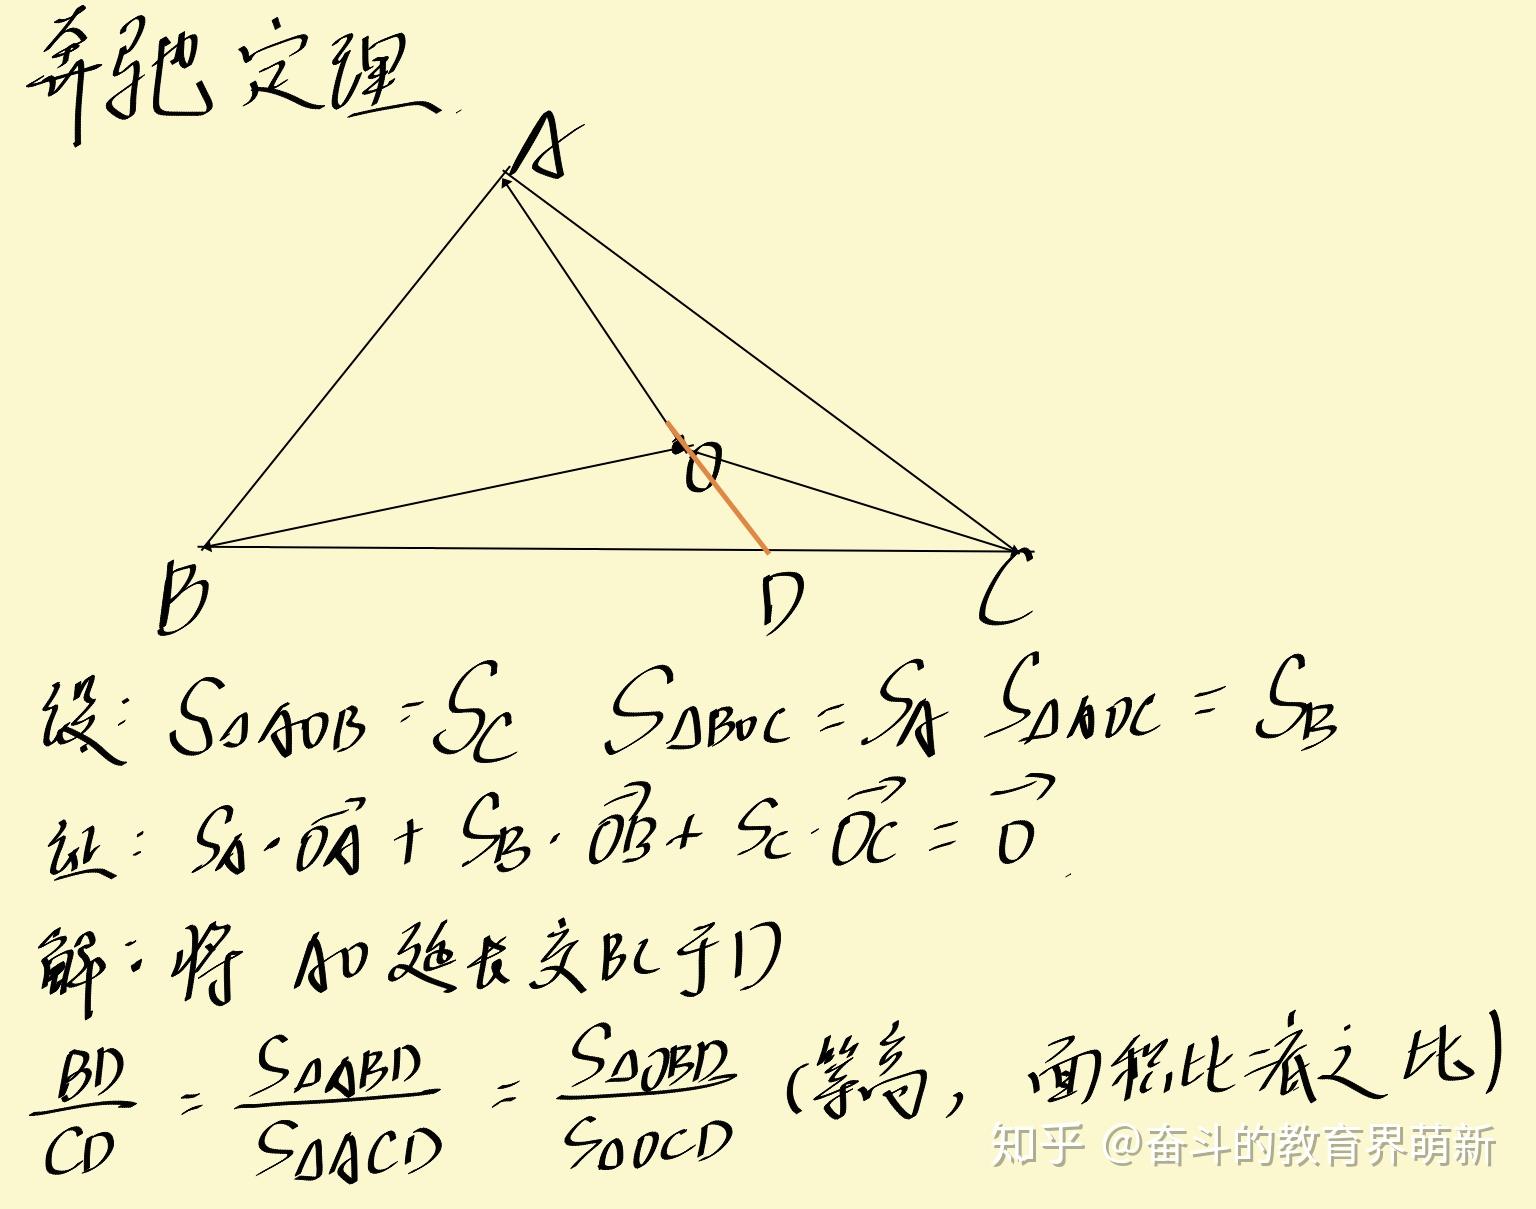 奔驰定理
A
O
B D C
设: S△AOB = SC S△BOC = SA S△AOC = SB
证: SA·OA⃗ + SB·OB⃗ + SC·OC⃗ = 0⃗
解: 将 AO 延长交BC于D
BD/CD = S△ABD/S△ACD = S△OBD/S△OCD (等高, 面积比=底之比)
知乎 @奋斗的教育界萌新